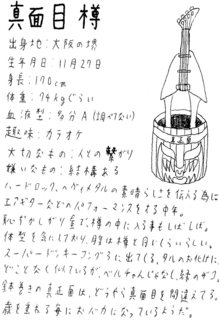 真面目 樽
出身地：大阪の堺
生年月日：11月27日
身長：170cm
体重：74kgぐらい
血液型：多分A（調べてない）
趣味：カラオケ
大切なもの：人との繋がり
嫌いなもの：結構ある
ハードロック、ヘヴィメタルの素晴らしさを伝える為に
エアギターなどのパフォーマンスをする中年。
恥ずかしがり屋で、樽の中に入る事もしばしば。
体型を気にしており、胴は樽と同じくらいらしい。
スーパードンキーコングに出てくる、タルのおばけに、
どことなく似ているが、ベルちゃんじゃなし、緑のザコ。
鉢巻きの真正面は、どうやら真面目を間違えてる。
歳を重ねる毎におバカになっているようだ。
真正面